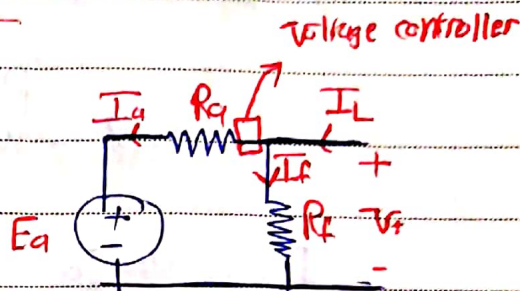 Voltage controller
Ia Ra IL
If
+
+
Ea
-
Rf Vt
-